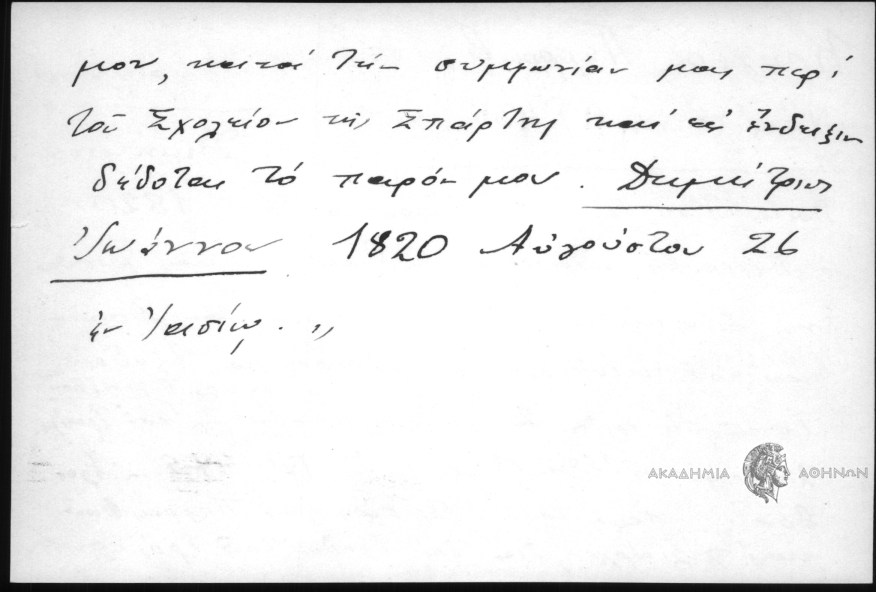 μου, κατά τήν συμφωνίαν μας περί
τοῦ Σχολείου τῆς Σπάρτης καί εἰς ἔνδειξιν
δίδοται τό παρόν μου. Δημήτριος
Ἰωάννου 1820 Αὐγούστου 26
ἐν Ἰασίῳ. "
ΑΚΑΔΗΜΙΑ ΑΘΗΝΩΝ